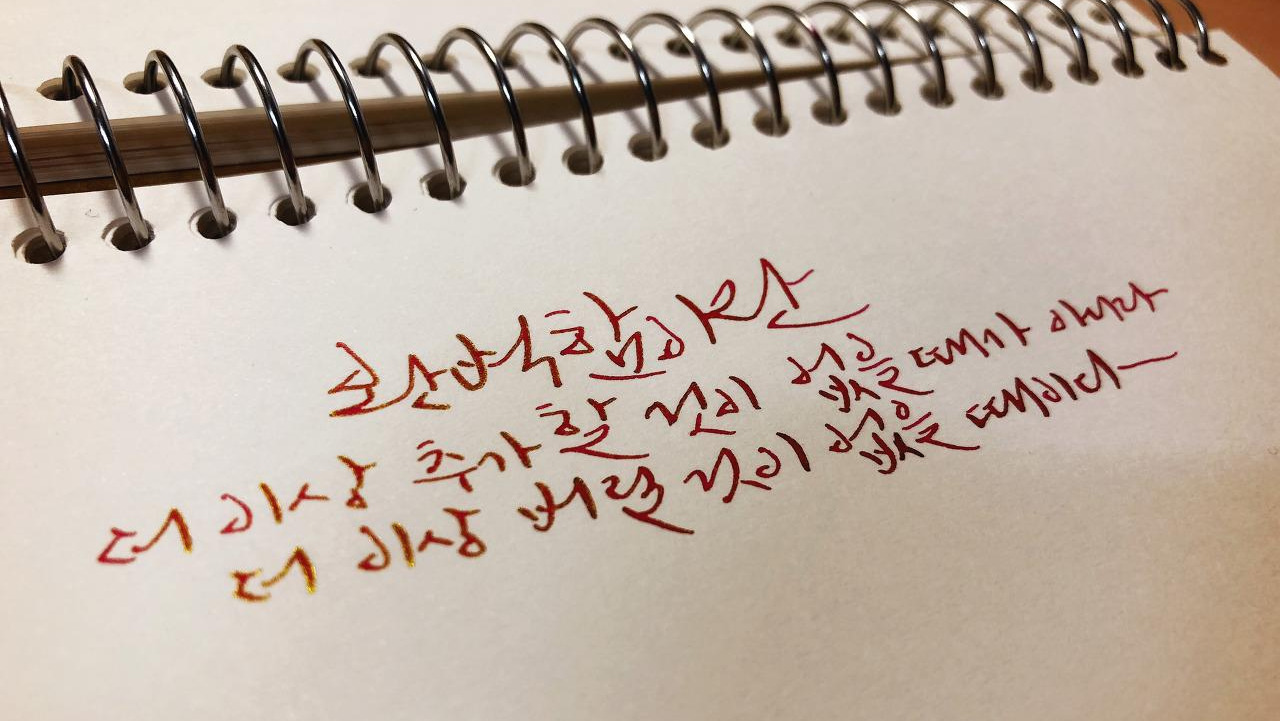 더 이상 추가할 것이 없을 때가 아니라
더 이상 버릴 것이 없을 때이다